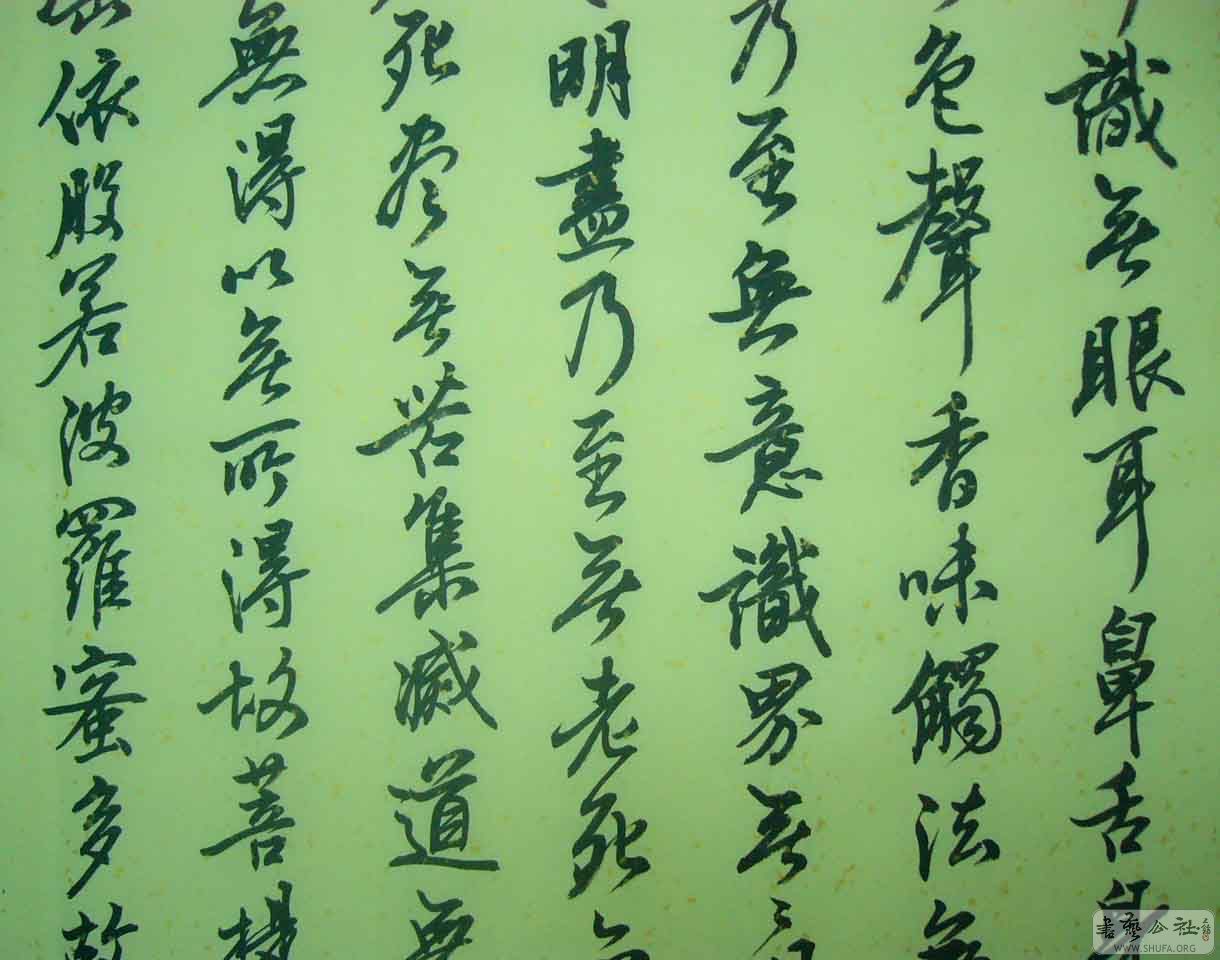 識無眼耳鼻舌身
色聲香味觸法無
乃至無意識界無
明盡乃至無老死
死尽無苦集滅道無
無得以無所得故菩提
依般若波羅蜜多故
書藝公社
WWW.SHUFA.ORG